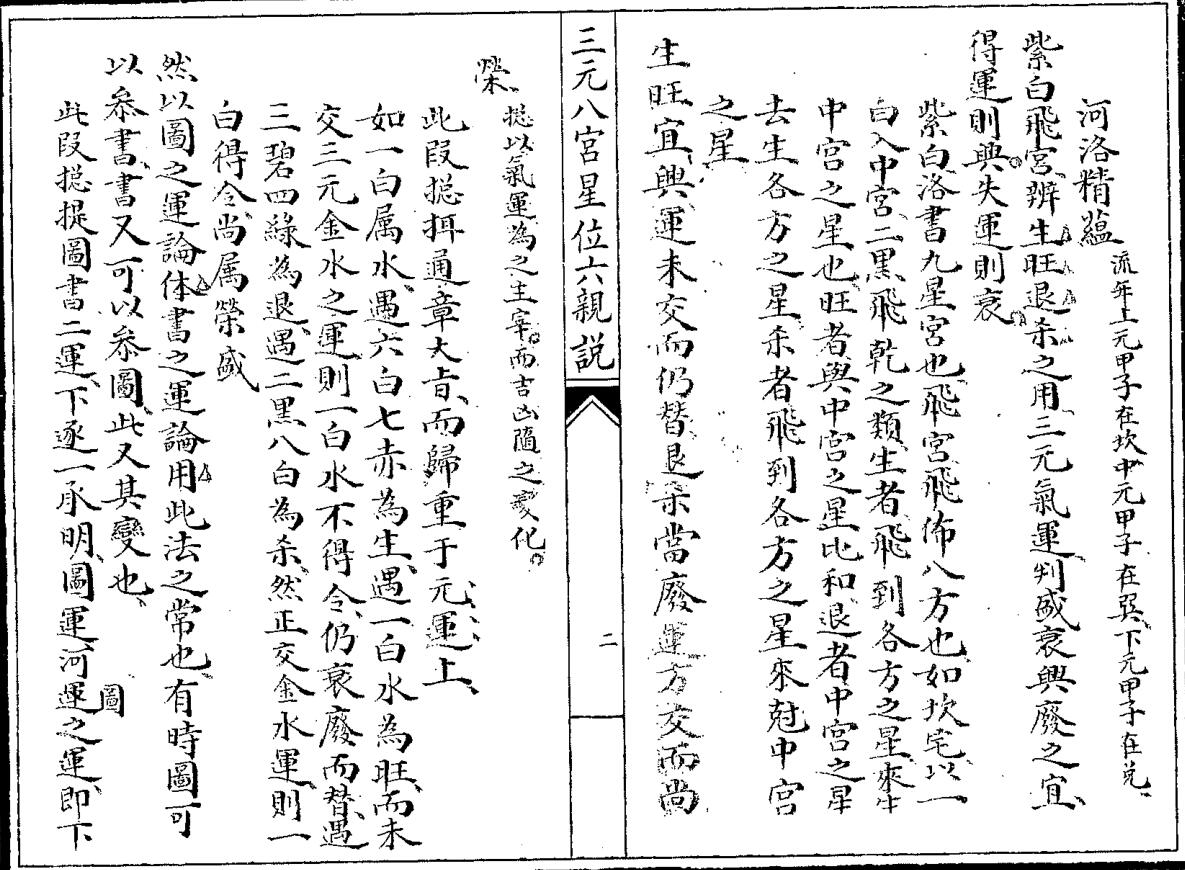 河洛精蘊
流年上元甲子在坎中元甲子在巽下元甲子在兑
紫白飛宮辨生旺退杀之用三元氣運判盛衰興廢之宜
得運則興失運則衰
紫白洛書九星宮也飛宮飛佈八方也如坎宅以一
白入中宮二黑飛乾之類生者飛到各方之星來生
中宮之星也旺者與中宮之星比和退者中宮之星
去生各方之星杀者飛到各方之星來尅中宮
之星
生旺宜興運未交而仍替退杀當廢運方交而尚
三元八宮星位六親説
二
榮
揔以氣運為之主宰而吉凶隨之变化
此段揔挕通章大旨而歸重于元運上
如一白属水遇六白七赤為生遇一白水為旺而未
交三元金水之運則一白水不得令仍衰廢而替遇
三碧四綠為退遇二黑八白為杀然正交金水運則一
白得令尚属榮盛
然以圖之運論体書之運論用此法之常也有時圖可
以叅書書又可以叅圖此又其變也
此段揔提圖書二運下逐一承明圖運河圖之運即下